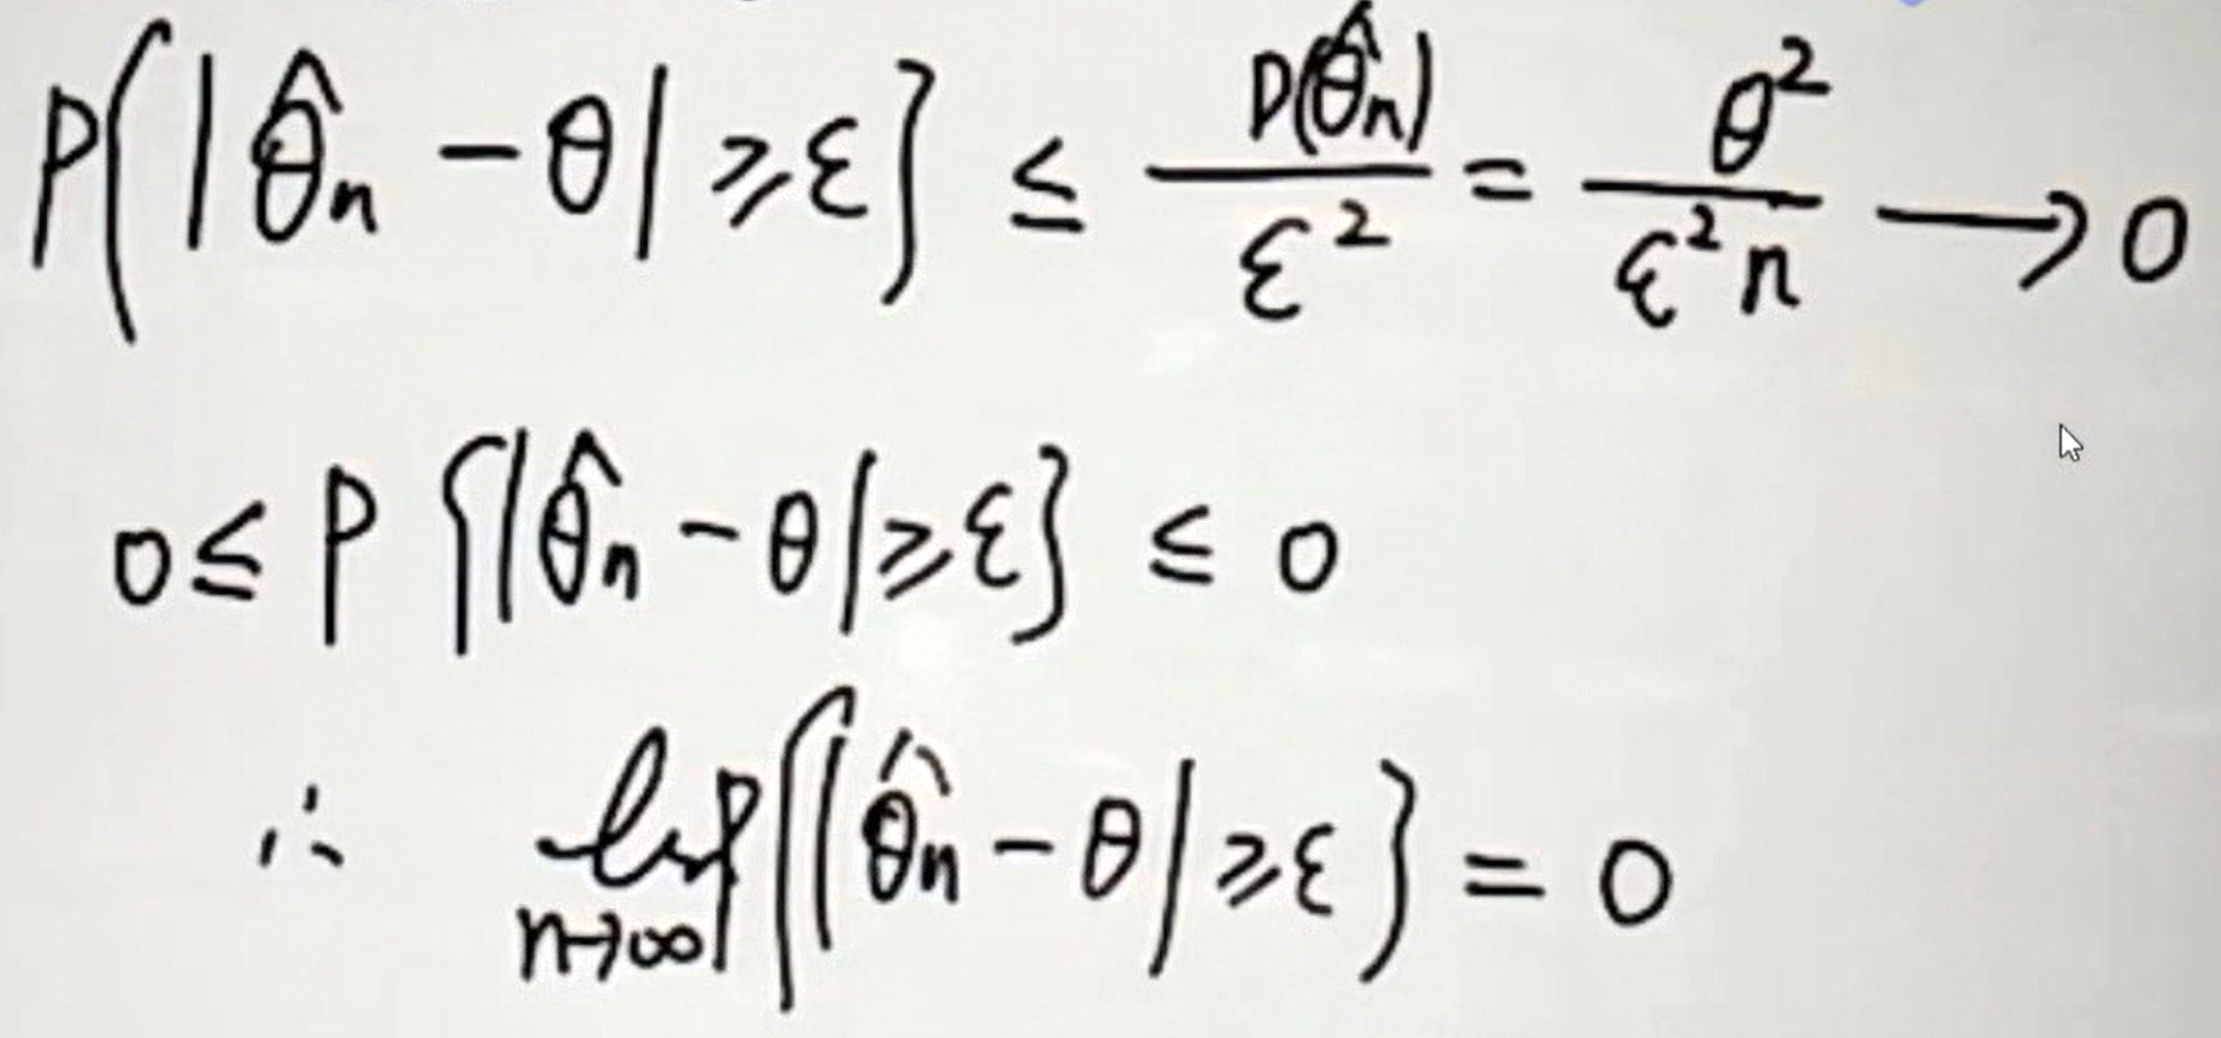 P{|θ̂ₙ − θ| ⩾ ε} ≤ D(θ̂ₙ)/ε² = θ²/(ε²n) ⟶ 0
0 ≤ P{|θ̂ₙ − θ| ⩾ ε} ≤ 0
∴ lim_{n→∞} P{|θ̂ₙ − θ| ⩾ ε} = 0